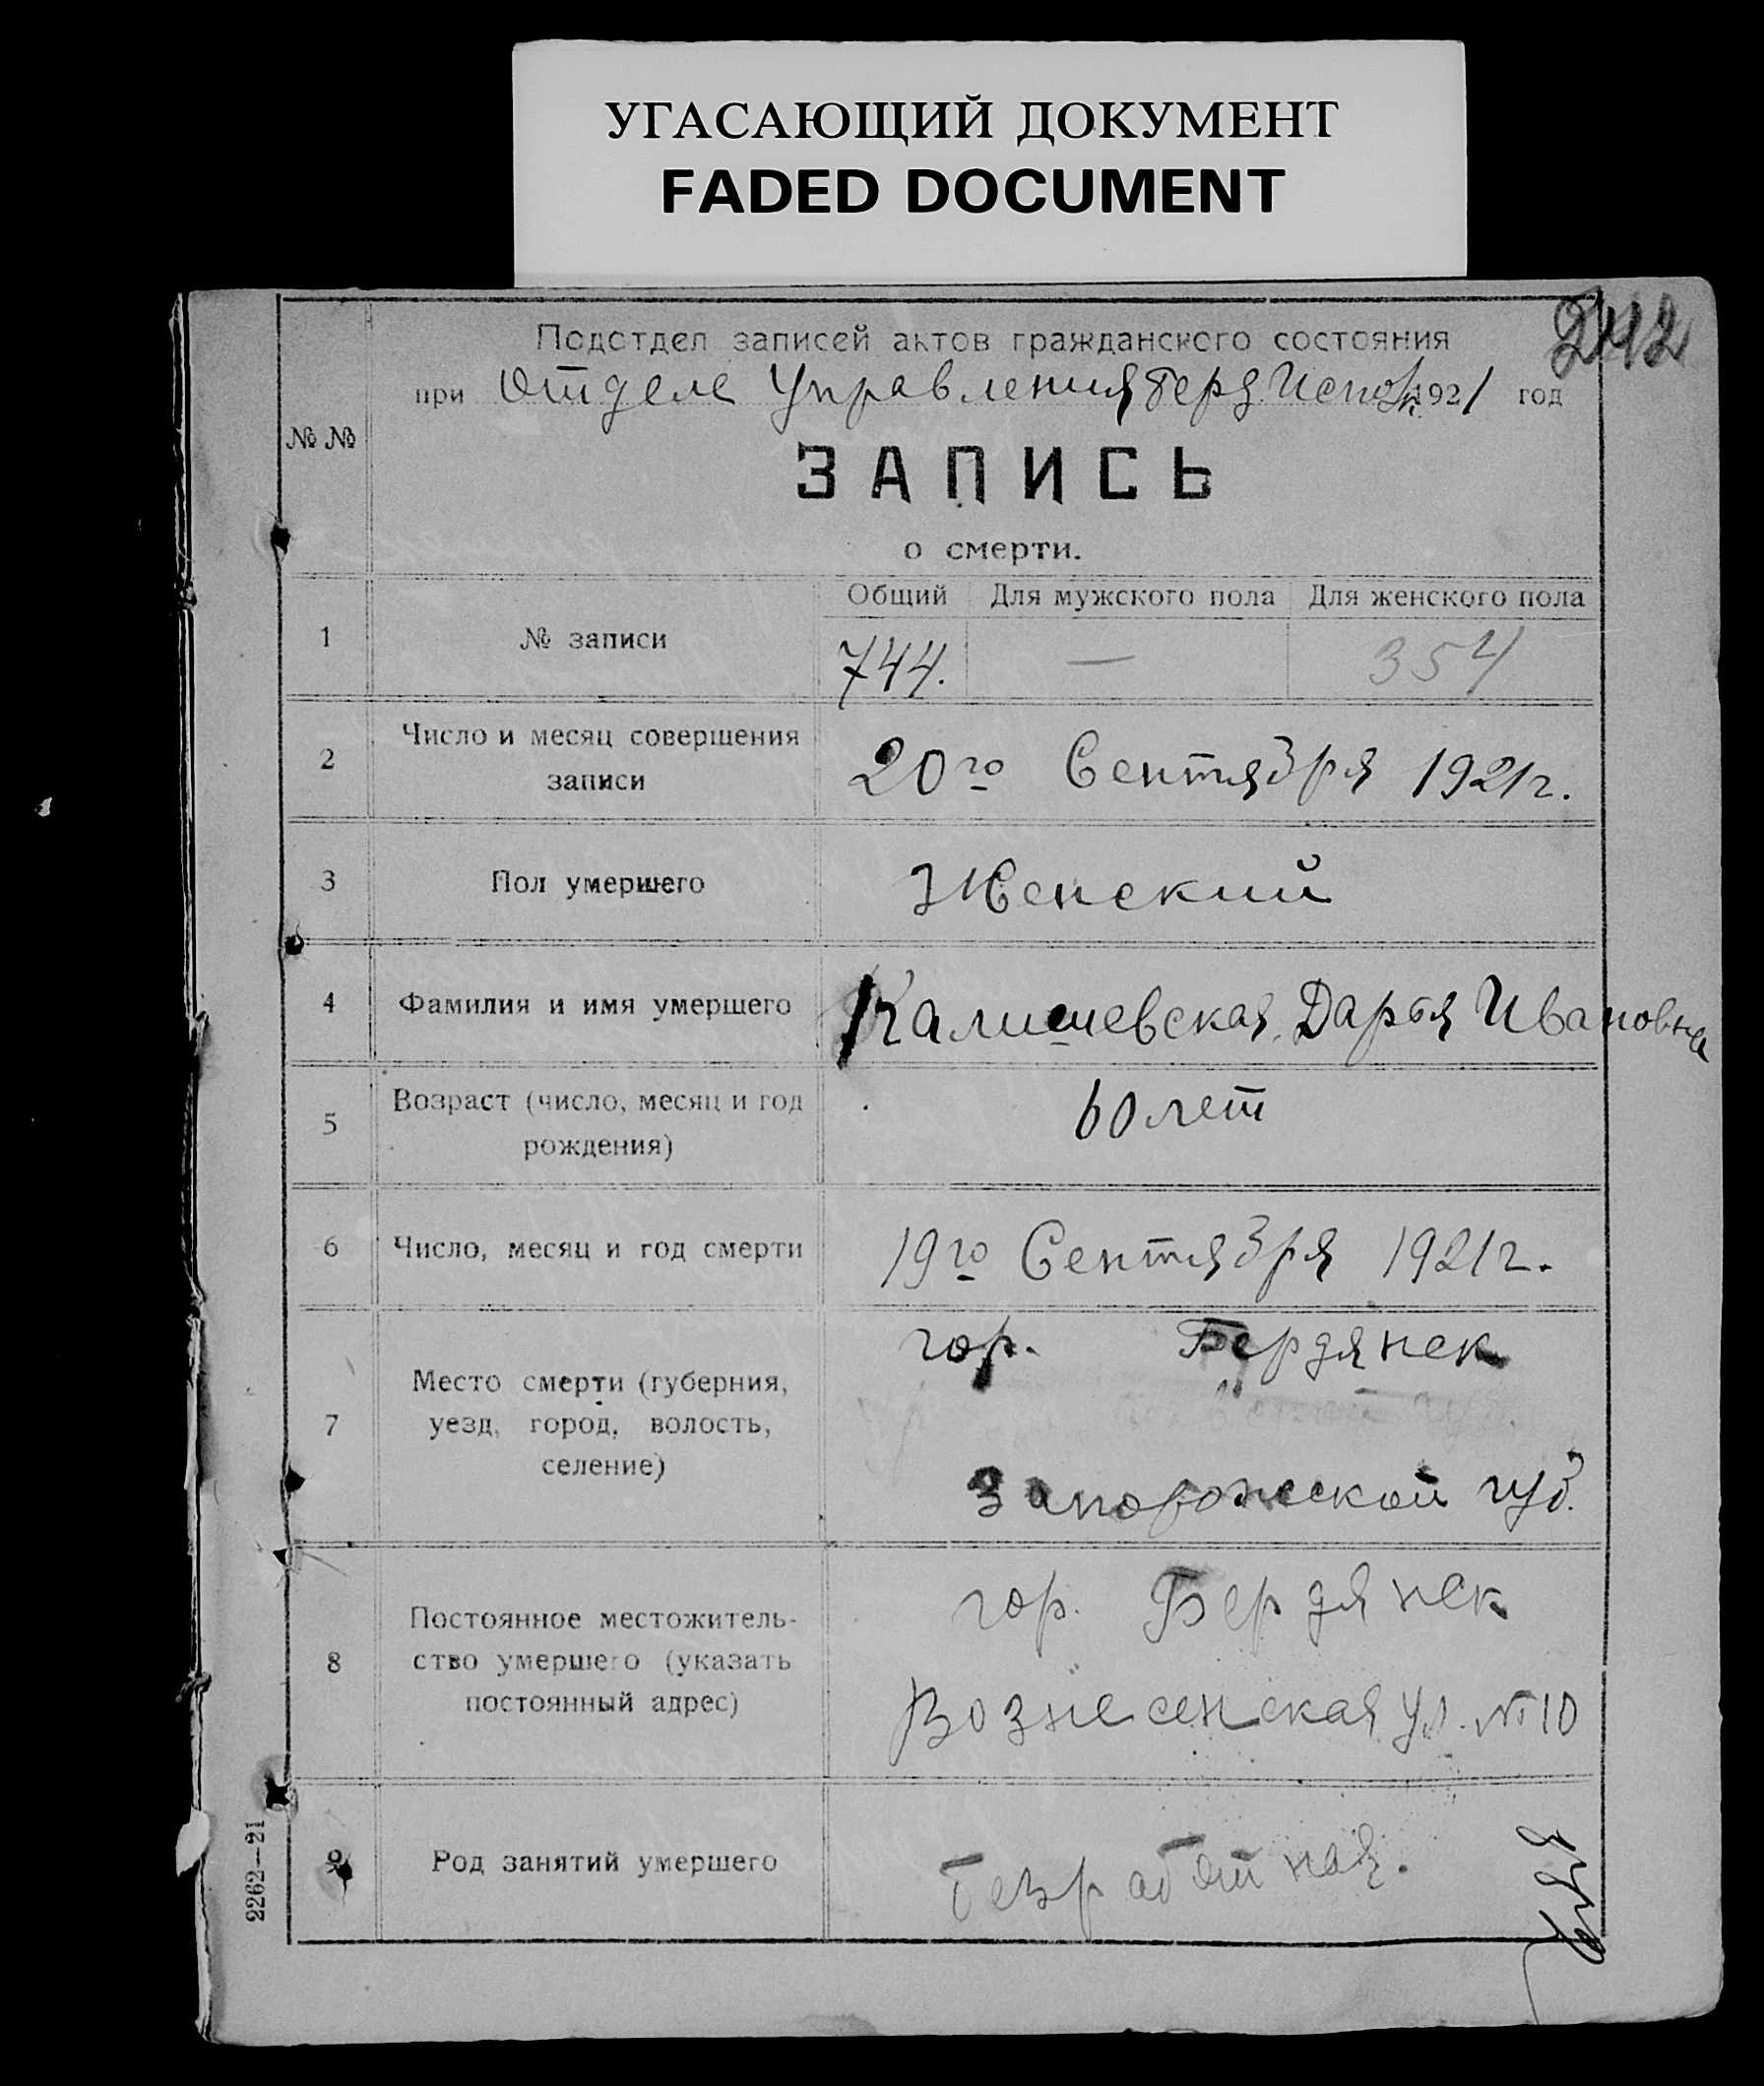 УГАСАЮЩИЙ ДОКУМЕНТ
FADED DOCUMENT
242
Подотдел записей актов гражданского состояния
при Отделе Управления Берд. Исполк. 1921 год
№ №
ЗАПИСЬ
о смерти.
Общий Для мужского пола Для женского пола
1 № записи 744. — 354
2 Число и месяц совершения
записи
20го Сентября 1921г.
3 Пол умершего Женский
4 Фамилия и имя умершего Калишевская, Дарья Ивановна
5 Возраст (число, месяц и год
рождения)
60 лет
6 Число, месяц и год смерти 19го Сентября 1921г.
7 Место смерти (губерния,
уезд, город, волость,
селение)
гор. Бердянск
Запорожской губ.
8 Постоянное местожитель-
ство умершего (указать
постоянный адрес)
гор. Бердянск
Вознесенская ул. № 10
9 Род занятий умершего Безработная.
2262—21